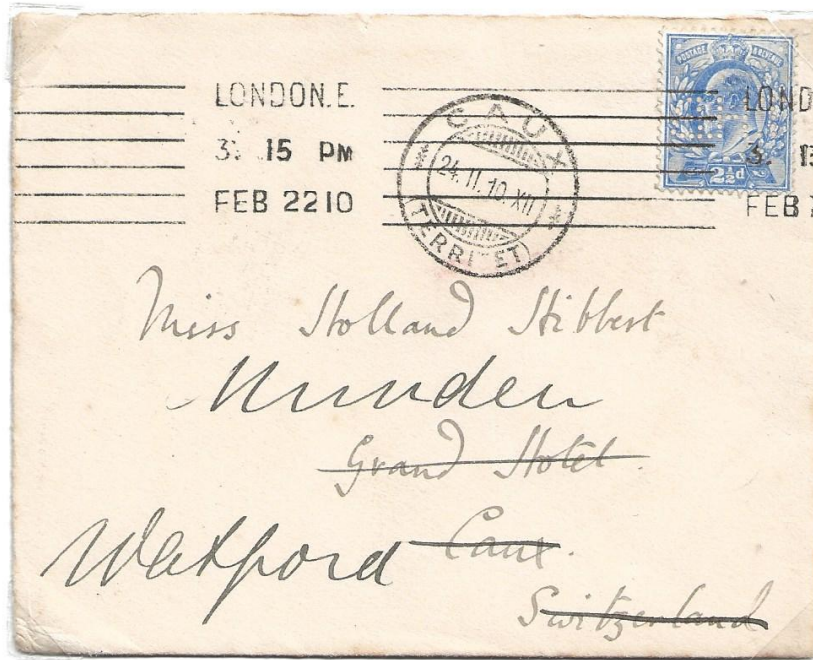 LONDON.E.
3. 15 PM
FEB 22 10
CAUX
24.II.10.XII
(TERRITET)
POSTAGE & REVENUE
2½d
LOND
3. 15
FEB
Miss Holland Hibbert
Munden
Grand Hotel.
Watford Caux.
Switzerland